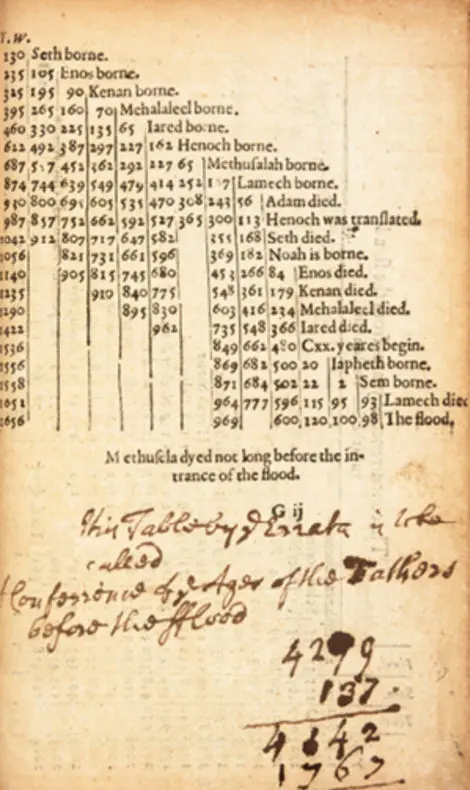 130 Seth borne.
235 105 Enos borne.
325 195 90 Kenan borne.
395 265 160 70 Mehalaleel borne.
460 330 225 135 65 Iared borne.
622 492 387 297 227 162 Henoch borne.
687 557 452 362 292 227 65 Methusalah borne.
874 744 639 549 479 414 252 187 Lamech borne.
930 800 695 605 535 470 308 243 56 Adam died.
987 857 752 662 592 527 365 300 113 Henoch was translated.
1042 912 807 717 647 582 355 168 Seth died.
1056 821 731 661 596 369 182 Noah is borne.
1140 905 815 745 680 453 266 84 Enos died.
1235 910 840 775 548 361 179 Kenan died.
1290 895 830 603 416 234 Mehalaleel died.
1422 962 735 548 366 Iared died.
1536 849 662 480 Cxx. yeares begin.
1556 869 682 500 20 Iapheth borne.
1558 871 684 502 22 2 Sem borne.
1651 964 777 596 115 95 93 Lamech died
1656 969 600 120 100 98 The flood.
Methusela dyed not long before the in-
trance of the flood.
G ij
This Table by ye Errata is to be
called
Conference of ye Ages of the Fathers
before the fflood
137
1767